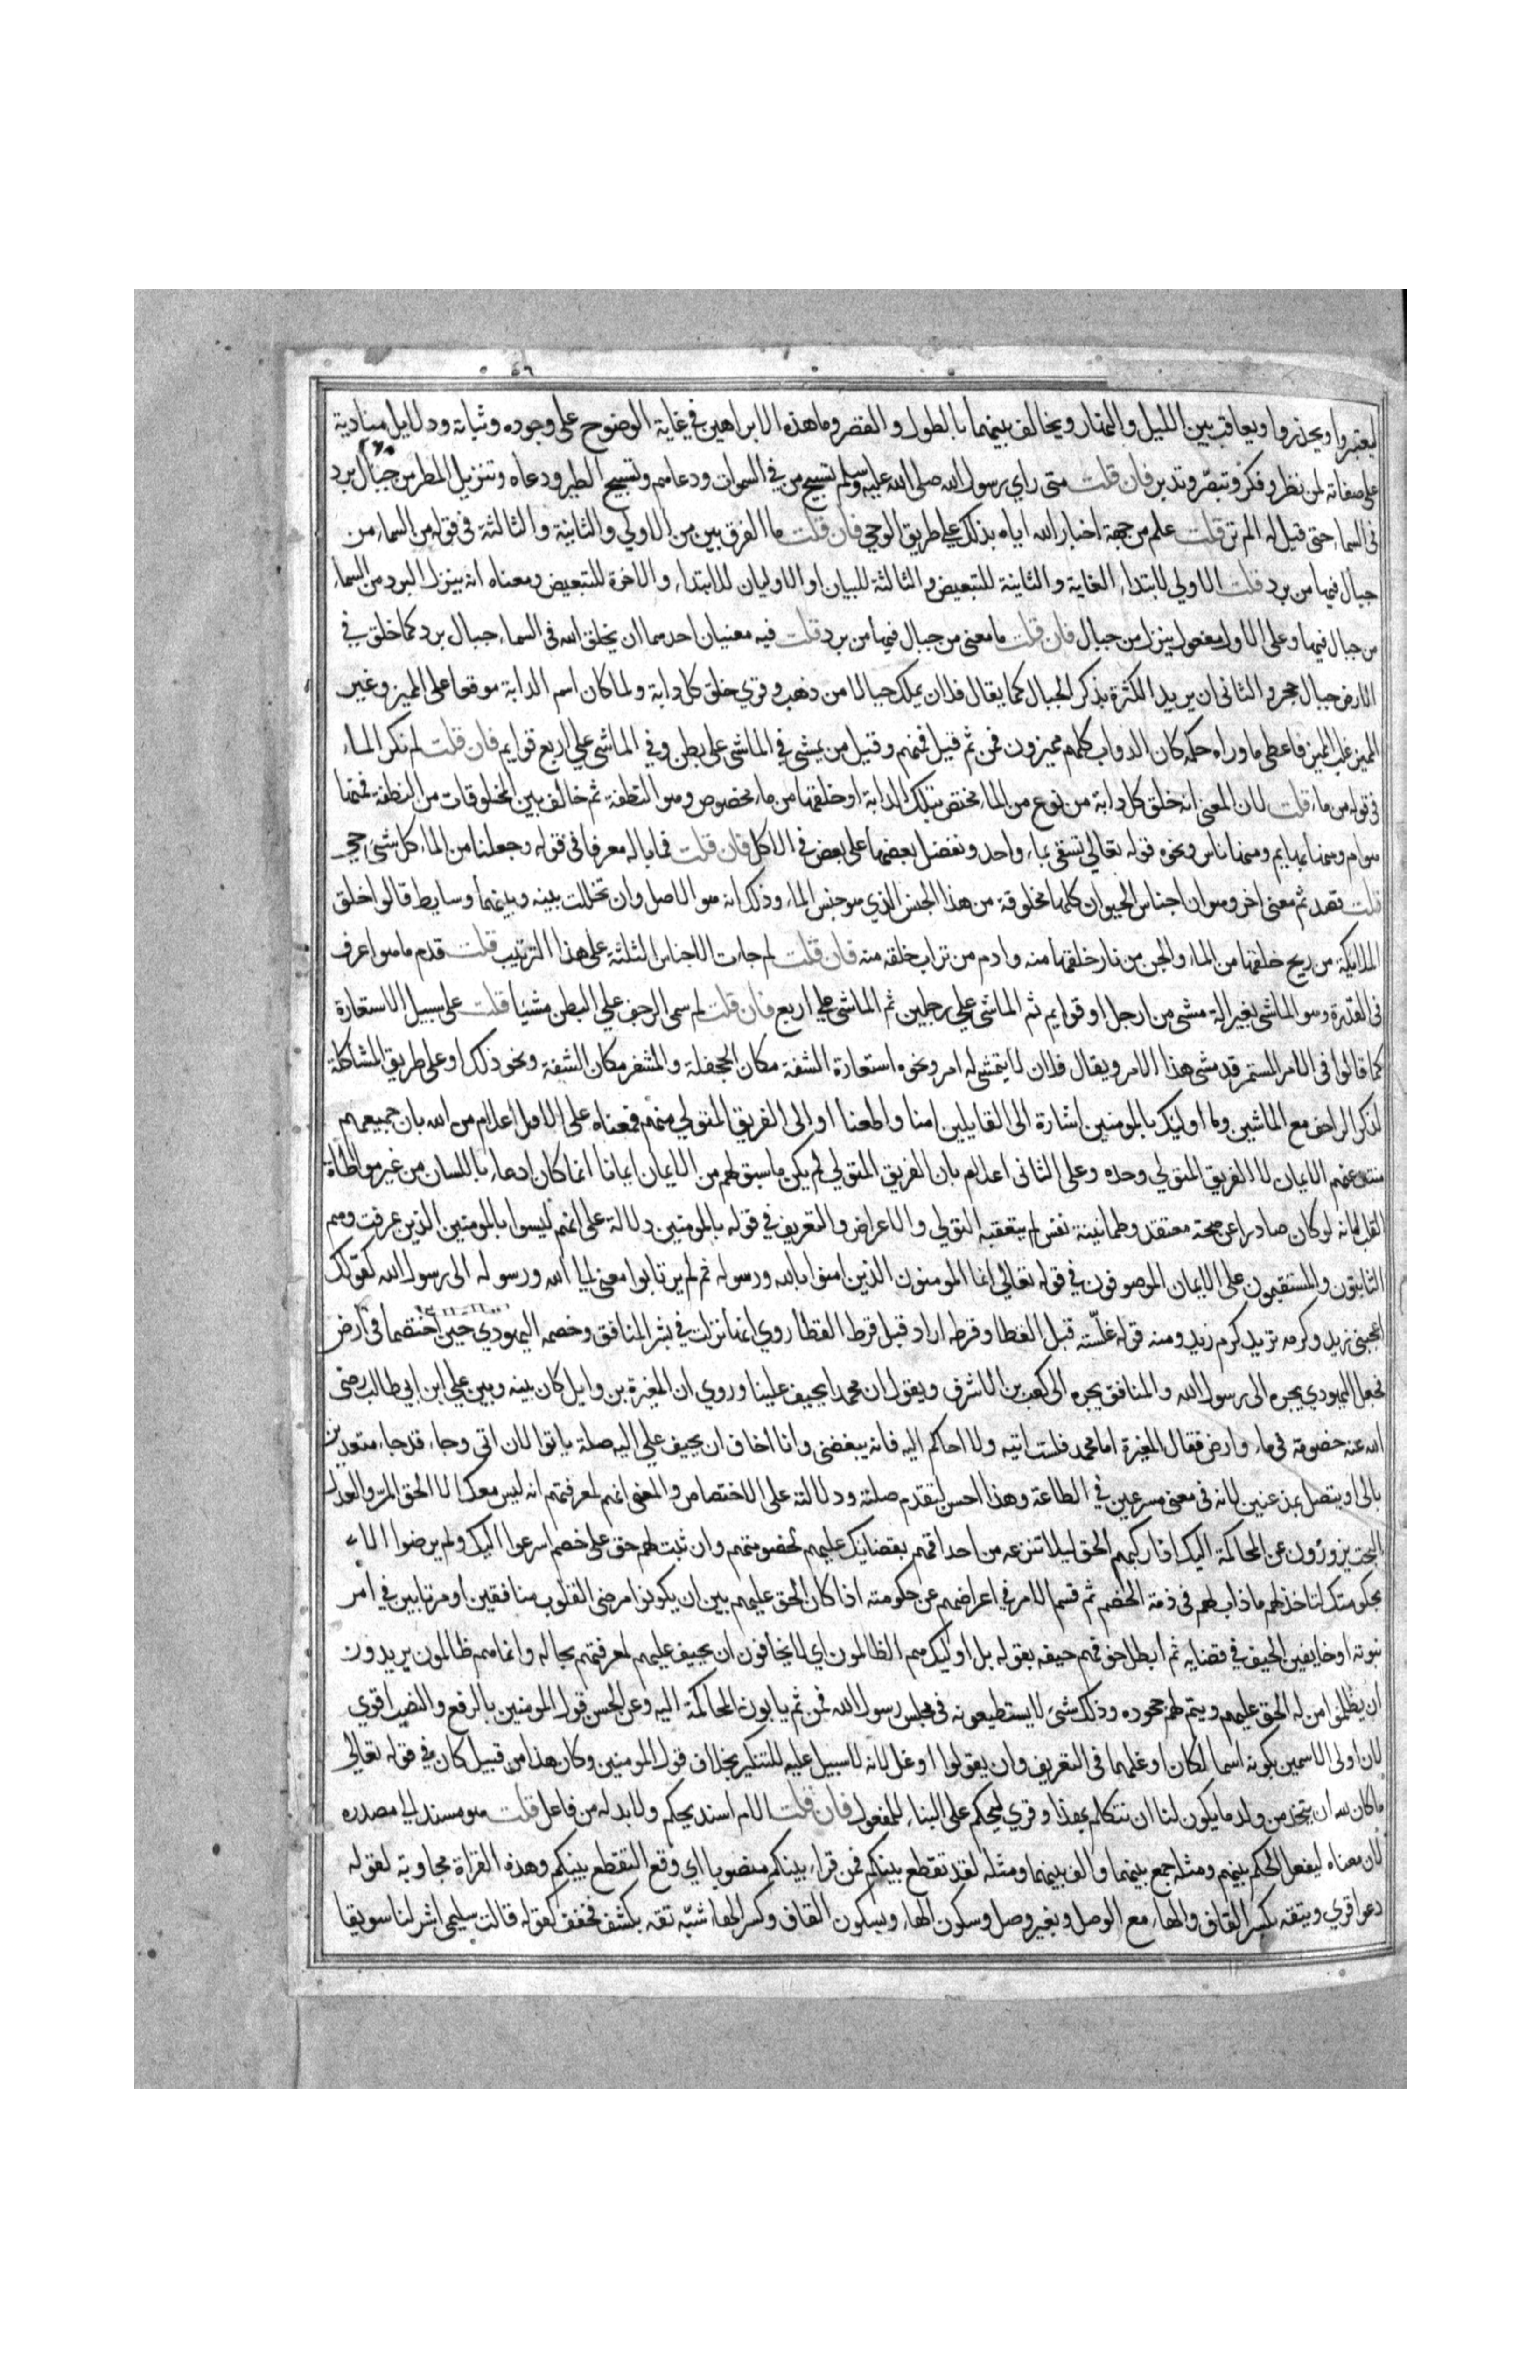 ٥٦
ليعتبروا ويحذروا ويعاقب بين الليل والنهار ويخالف بينهما بالطول والقصر وما هذه الا براهين في غاية الوضوح على وجوده وثباته ودلايل منادية
على صفاته لمن نظر وفكر وتبصر وتدبر فان قلت متى راي رسول الله صلى الله عليه وسلم تسبيح من في السموات ودعاهم وتسبيح الطير ودعاه وتنزيل المطر من جبال برد
في السماء حتى قيل له الم تر قلت علم من جهة اخبار الله اياه بذلك على طريق الوحي فان قلت ما الفرق بين من الاولي والثانية والثالثة في قوله من السماء من
جبال فيها من برد قلت الاولي لابتداء الغاية والثانية للتبعيض والثالثة للبيان او الاوليان للابتداء والاخرة للتبعيض ومعناه انه ينزل البرد من السماء
من جبال فيها وعلى الاول مفعول ينزل من جبال فان قلت ما معنى من جبال فيها من برد قلت فيه معنيان احدهما ان يخلق الله في السماء جبال برد كما خلق في
الارض جبال حجر والثاني ان يريد الكثرة بذكر الجبال كما يقال فلان يملك جبالا من ذهب وقري خلق كل دابة ولما كان اسم الدابة موقعا على المميز وغير
المميز غلب المميز فاعطي ما وراه حكمه كان الدواب كلهم مميزون فمن ثم قيل فمنهم وقيل من يمشي في الماشي على بطن وفي الماشي على اربع قوايم فان قلت لم نكر الماء
في قوله من ماء قلت لان المعنى انه خلق كل دابة من نوع من الماء مختص بتلك الدابة او خلقها من ماء مخصوص وهو النطفة ثم خالف بين المخلوقات من النطفة فمنها
هوام ومنها بهايم ومنها ناس ونحوه قوله تعالى تسقى بماء واحد ونفضل بعضها على بعض في الاكل فان قلت فما باله معرفا في قوله وجعلنا من الماء كل شئ حي
قلت قصد ثم معنى اخر وهو ان اجناس الحيوان كلها مخلوقة من هذا الجنس الذي هو جنس الماء وذلك انه هو الاصل وان تخللت بينه وبينها وسايط قالوا خلق
الملايكة من ريح خلقها من الماء والجن من نار خلقها منه وادم من تراب خلقه منه فان قلت لم جات الاجناس الثلثة على هذا الترتيب قلت قدم ما هو اعرف
في القدرة وهو الماشي بغير الة مشي من ارجل او قوايم ثم الماشي على رجلين ثم الماشي على اربع فان قلت لم سمى الزحف على البطن مشيا قلت على سبيل الاستعارة
كما قالوا في الامر المستمر قد مشى هذا الامر ويقال فلان لا يتمشى له امر ونحوه استعارة الشفة مكان الجحفلة والمشفر مكان الشفة ونحو ذلك او على طريق المشاكلة
لذكر الزاحف مع الماشين وما اوليك بالمومنين اشارة الى القايلين امنا واطعنا او الى الفريق المتولي منهم فمعناه على الاول اعلام من الله بان جميعهم
منتف عنهم الايمان لا الفريق المتولي وحده وعلى الثاني اعلام بان الفريق المتولي لم يكن ما سبق لهم من الايمان ايمانا انما كان ادعاء باللسان من غير مواطاة
القلب لانه لو كان صادرا عن صحة معتقد وطمانينة نفس لم يتعقبه التولي والاعراض والتعريف في قوله بالمومنين دلالة على انهم ليسوا بالمومنين الذين عرفت وهم
الثابتون والمستقيمون على الايمان الموصوفون في قوله تعالى انما المومنون الذين امنوا بالله ورسوله ثم لم يرتابوا معنى الى الله ورسوله الى رسول الله كقولك
اعجبني زيد وكرمه تريد كرم زيد ومنه قوله غلسته قبل القطا وفرطه اراد قبل فرط القطا روي انها نزلت في بشر المنافق وخصمه اليهودي حين اختصما في ارض
فجعل اليهودي يجره الى رسول الله والمنافق يجره الى كعب بن الاشرف ويقول ان محمدا يحيف علينا وروي ان المغيرة بن وايل كان بينه وبين علي ابن ابي طالب رضي
الله عنه خصومة في ماء وارض فقال المغيرة اما محمد فلست اتيه ولا احاكم اليه فانه يبغضني وانا اخاف ان يحيف علي اليه صلة ياتوا لان اتى وجاء قد جاء متعديين
بالى او يتصل بمذعنين لانه في معنى مسرعين في الطاعة وهذا احسن لتقدم صلته ودلالته على الاختصاص والمعنى انهم لمعرفتهم انه ليس معك الا الحق المر والعدل
البحت يزورون عن المحاكمة اليك اذا ركبهم الحق ليلا تنزعه من احداقهم بقضايك عليهم لخصومهم وان ثبت لهم حق على خصم اسرعوا اليك ولم يرضوا الا
بحكومتك لتاخذ لهم ما ذاب لهم في ذمة الخصم ثم قسم الامر في اعراضهم عن حكومته اذا كان الحق عليهم بين ان يكونوا مرضى القلوب منافقين او مرتابين في امر
نبوته او خايفين الحيف في قضايه ثم ابطل خوفهم حيفه بقوله بل اوليك هم الظالمون اي لا يخافون ان يحيف عليهم لمعرفتهم بحاله وانما هم ظالمون يريدون
ان يظلموا من له الحق عليهم ويتم لهم جحوده وذلك شئ لا يستطيعونه في مجلس رسول الله فمن ثم يابون المحاكمة اليه وعن الحسن قول المومنين بالرفع والنصب اقوي
لان اولى الاسمين بكونه اسما لكان اوغلهما في التعريف وان يقولوا اوغل لانه لا سبيل عليه للتنكير بخلاف قول المومنين وكان هذا من قبيل كان في قوله تعالى
ما كان لله ان يتخذ من ولد ما يكون لنا ان نتكلم بهذا وقري ليحكم على البناء للمفعول فان قلت الام اسند يحكم ولا بد له من فاعل قلت هو مسند الى مصدره
لان معناه ليفعل الحكم بينهم ومثله جمع بينهما والف بينهما ومثله لقد تقطع بينكم فمن قراء بينكم منصوبا اي وقع التقطع بينكم وهذه القراة مجاوبة لقوله
دعوا قري ويتقه بكسر القاف والهاء مع الوصل وبغير وصل وسكون الهاء وبسكون القاف وكسر الهاء شبه تقه بكتف فخفف كقوله قالت سليمى اشتر لنا سويقا